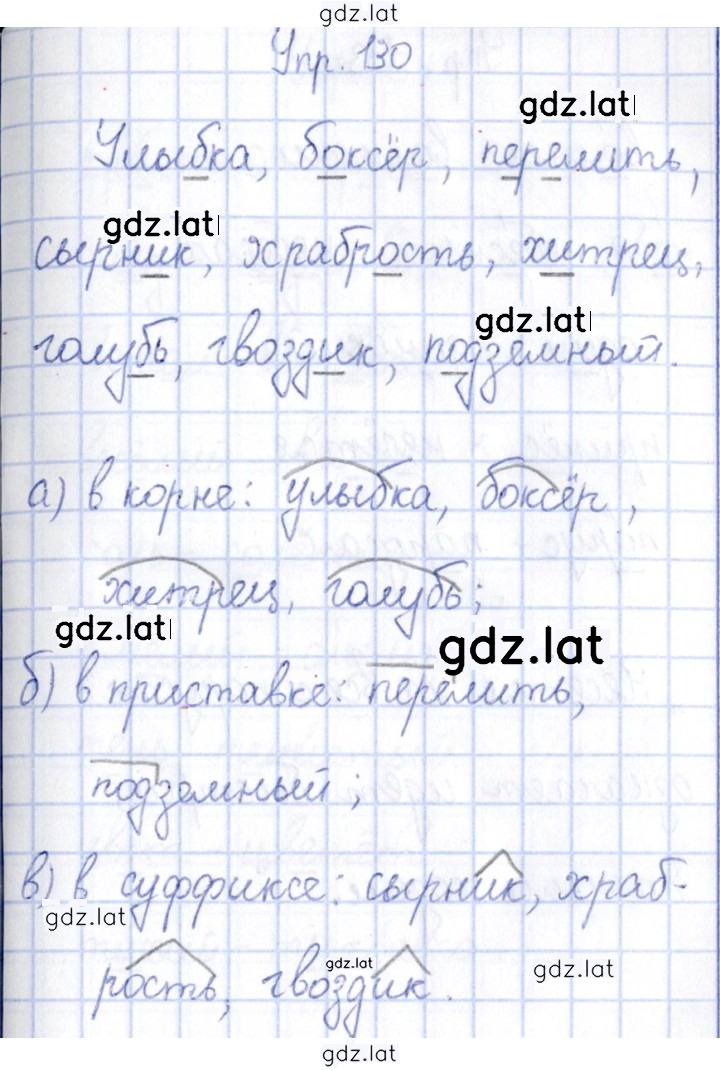 gdz.lat
Упр. 130
gdz.lat
Улыбка, боксёр, перелить,
gdz.lat
сырник, храбрость, хитрец,
gdz.lat
голубь, гвоздик, подземный.
а) в корне: улыбка, боксёр,
хитрец, голубь;
gdz.lat
gdz.lat
б) в приставке: перелить,
подземный;
в) в суффиксе: сырник, храб-
gdz.lat
рость, гвоздик.
gdz.lat
gdz.lat
gdz.lat